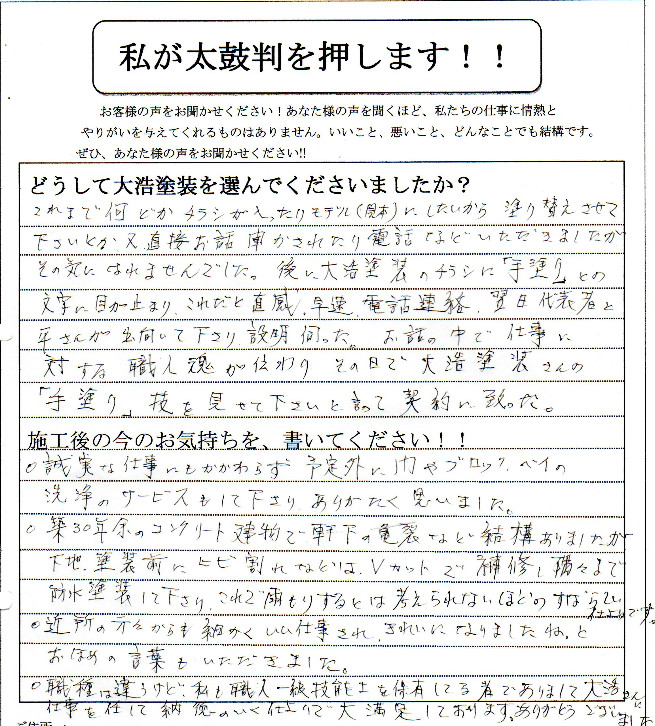 私が太鼓判を押します！！
お客様の声をお聞かせください！あなた様の声を聞くほど、私たちの仕事に情熱と
やりがいを与えてくれるものはありません。いいこと、悪いこと、どんなことでも結構です。
ぜひ、あなた様の声をお聞かせください!!
どうして大浩塗装を選んでくださいましたか？
これまで何どかチラシが入ったりモデル(見本)にしたいから塗り替えさせて
下さいとか又直接お話聞かされたり電話などいただきましたが
その気になれませんでした。後に大浩塗装のチラシに「手塗り」との
文字に目が止まり、これだと直感、早速、電話連絡、翌日代表者と
さんが出向いて下さり説明伺った。お話の中で仕事に
対する職人魂が伝わりその日で大浩塗装さんの
「手塗り」技を見せて下さいと言って契約に致った。
施工後の今のお気持ちを、書いてください！！
○誠実な仕事にもかかわらず予定外に門やブロックベイの
洗浄のサービスもして下さりありがたく思いました。
○築30年余のコンクリート建物で軒下の亀裂など結構ありましたが
下地、塗装前にヒビ割れなどは、Vカットで補修し隅々まで
防水塗装して下さり、これで雨もりするとは考えられないほどのすばらしい
仕上りです。
○近所の方々からも細かくいい仕事され、きれいになりましたね。と
おほめの言葉もいただきました。
○職種は違うけど、私も職人一級技能士を保有してる者でありまして大浩さんに
仕事を任して納得のいく仕上りで大満足しております。ありがとうございました